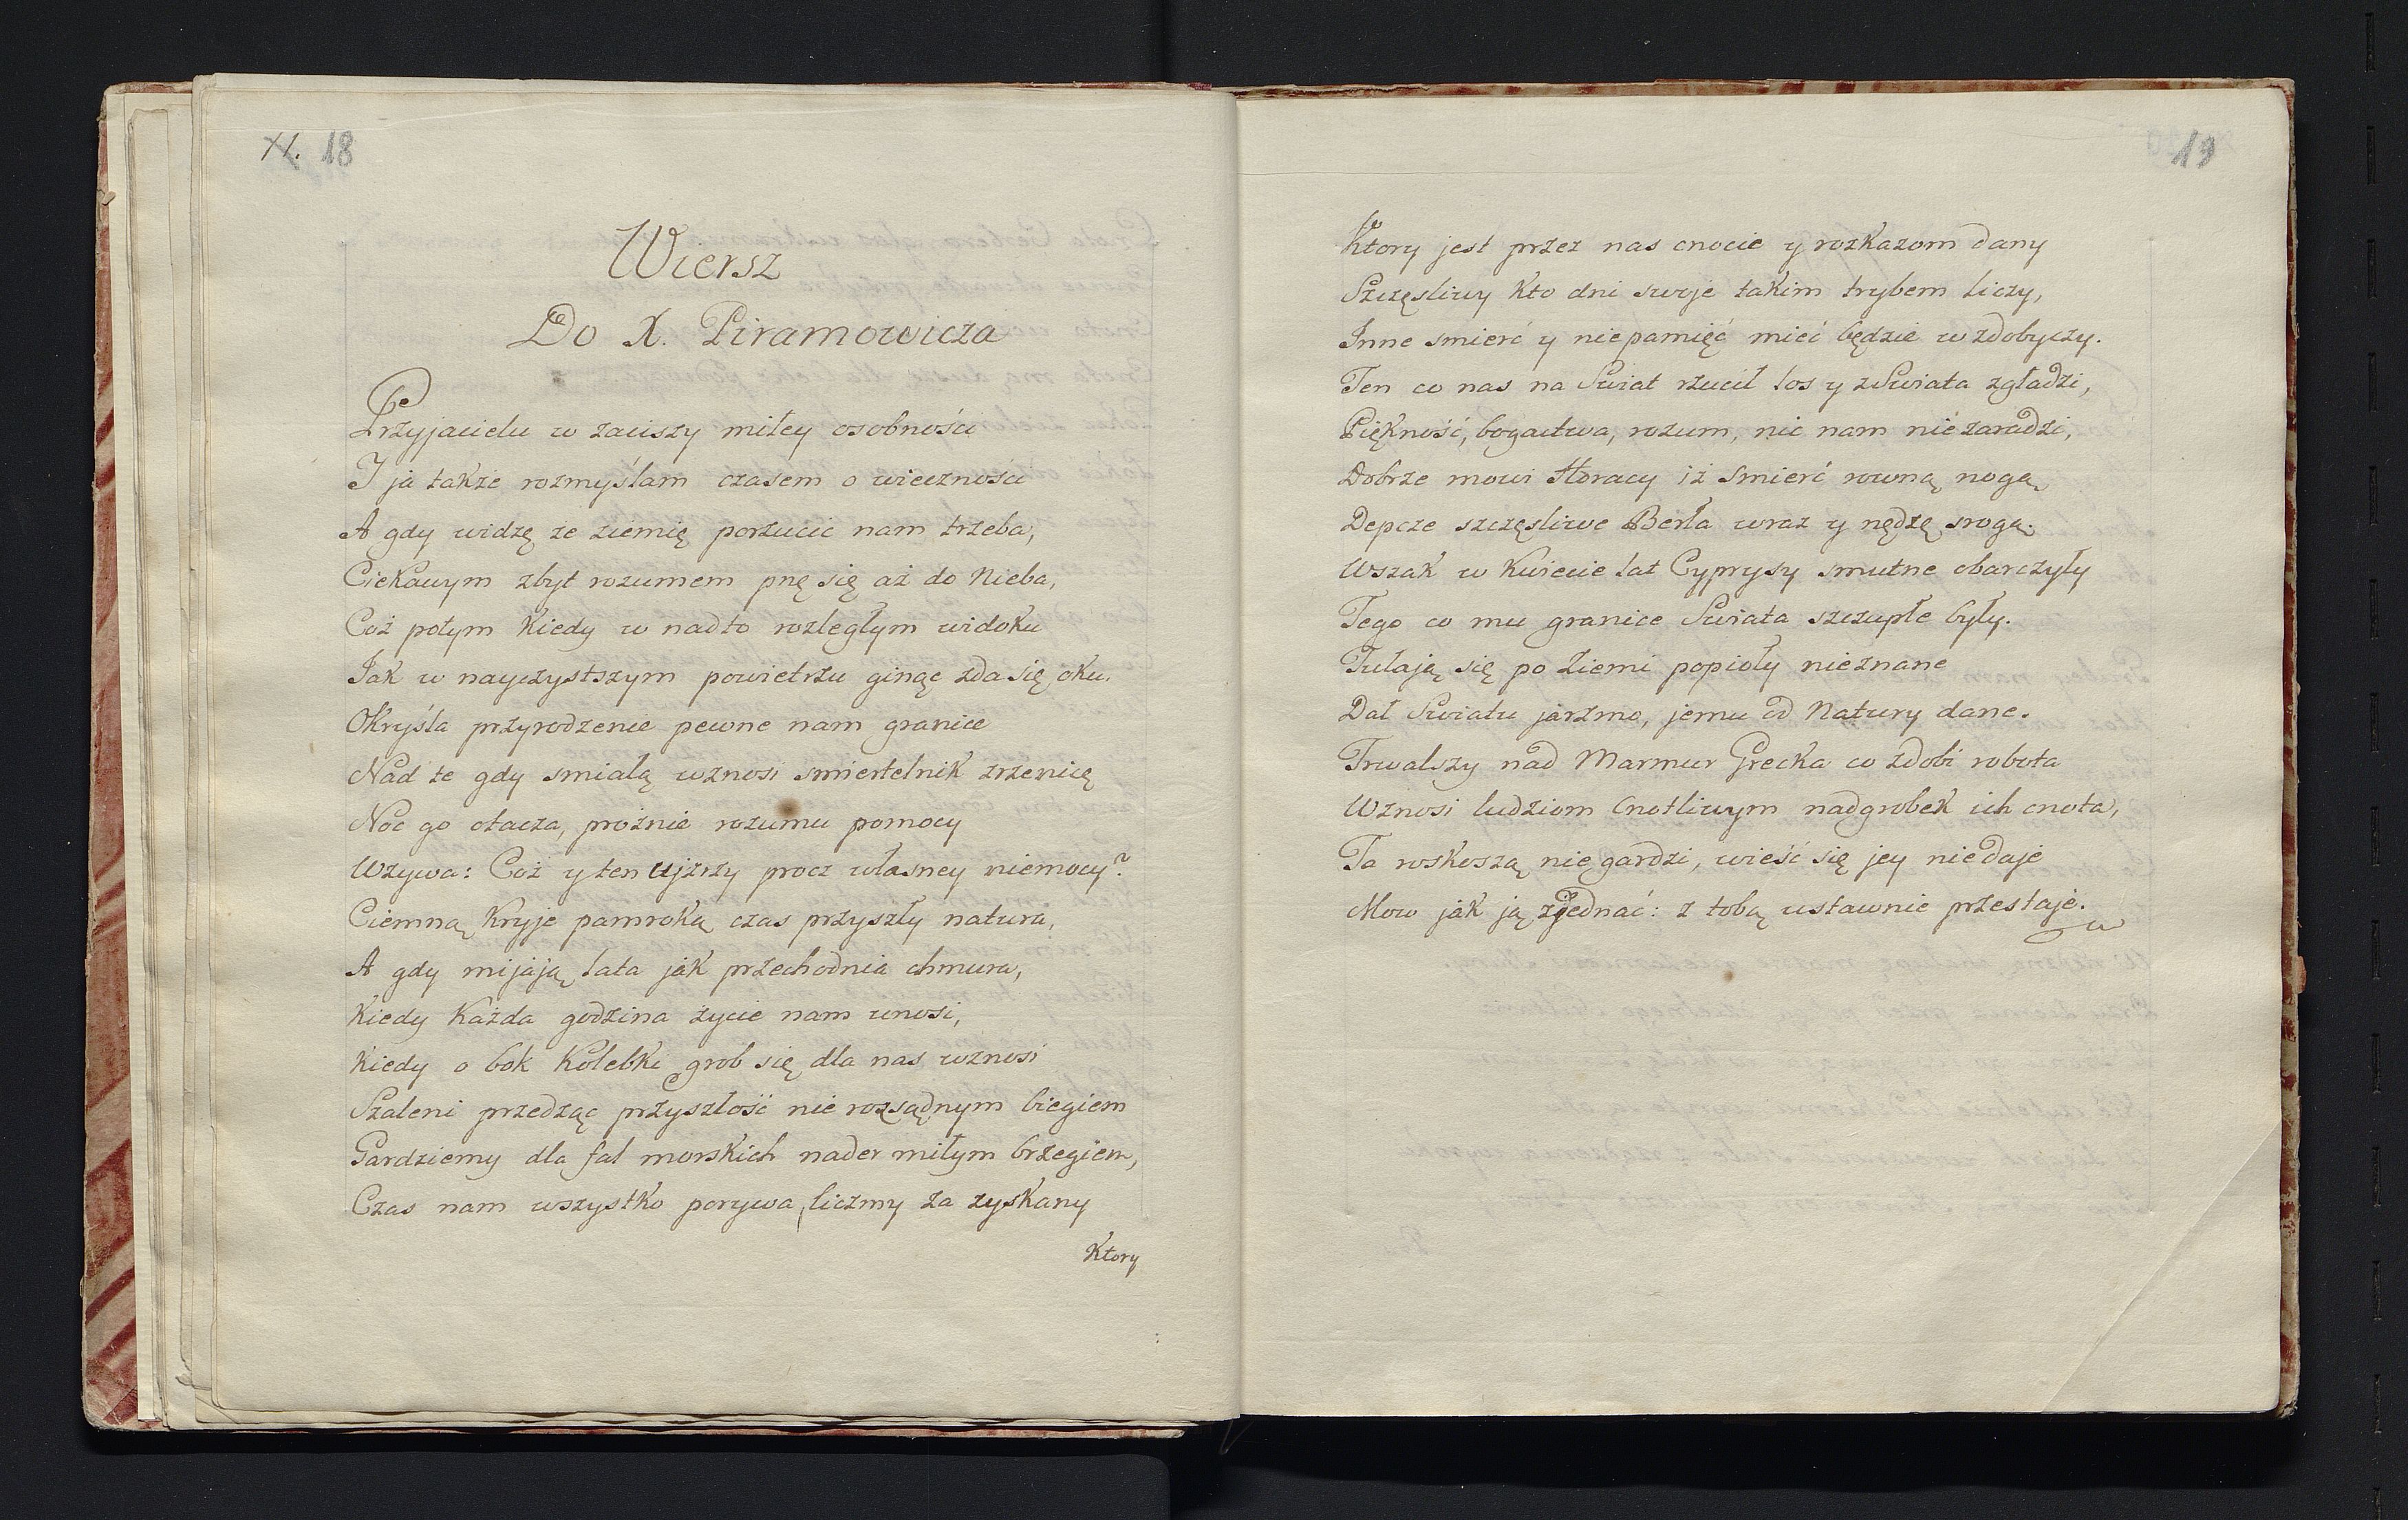 XI. 18
Wiersz
Do X. Piramowicza
Przyjacielu w zaciszy miłey osobności
I ja także rozmyślam czasem o wieczności
A gdy widzę ze ziemię porzucic nam trzeba,
Ciekawym zbyt rozumem pnę się aż do Nieba,
Coż potym Kiedy w nadto rozległym widoku
Jak w nayczystszym powietrzu ginąc zda się oku.
Okryśla przyrodzenie pewne nam granice
Nad te gdy smiałą wznosi smiertelnik zrzenicę
Noc go otacza, prożnie rozumu pomocy
Wzywa: Coż y ten ujzrzy procz własney niemocy?
Ciemną Kryje pamroką czas przyszły natura,
A gdy mijają lata jak przechodnia chmura,
Kiedy Każda godzina życie nam unosi,
Kiedy o bok Kolebki grob się dla nas wznosi
Szaleni przedząc przyszłość nie rozsądnym biegiem
Gardziemy dla fal morskich nader miłym brzegiem,
Czas nam wszystko porywa, liczmy za zyskany
Ktory
19
Ktory jest przez nas cnocie y rozkazom dany
Szczęsliwy Kto dni swoje takim trybem liczy,
Inne smierć y niepamięć mieć będzie w zdobyczy.
Ten co nas na Swiat rzucił los y z Swiata zgładzi,
Piękność, bogactwa, rozum, nic nam nie zaradzi,
Dobrze mowi Horacy iż Smierć rowną nogą
Depcze szczęsliwe Berła wraz y nędzę srogą.
Wszak w Kwiecie lat Cyprysy smutne obarczyły
Tego co mu granice Swiata szczupłe były.
Tułają się po Ziemi popioły nieznane
Dał Swiatu jarzmo, jemu od Natury dane.
Trwalszy nad Marmur Grecka co zdobi robota
Wznosi ludziom Cnotliwym nadgrobek ich cnota,
Ta roskoszą nie gardzi, wieść się jey nie daje
Mow jak ją zjednać: z tobą ustawnie przestaje.